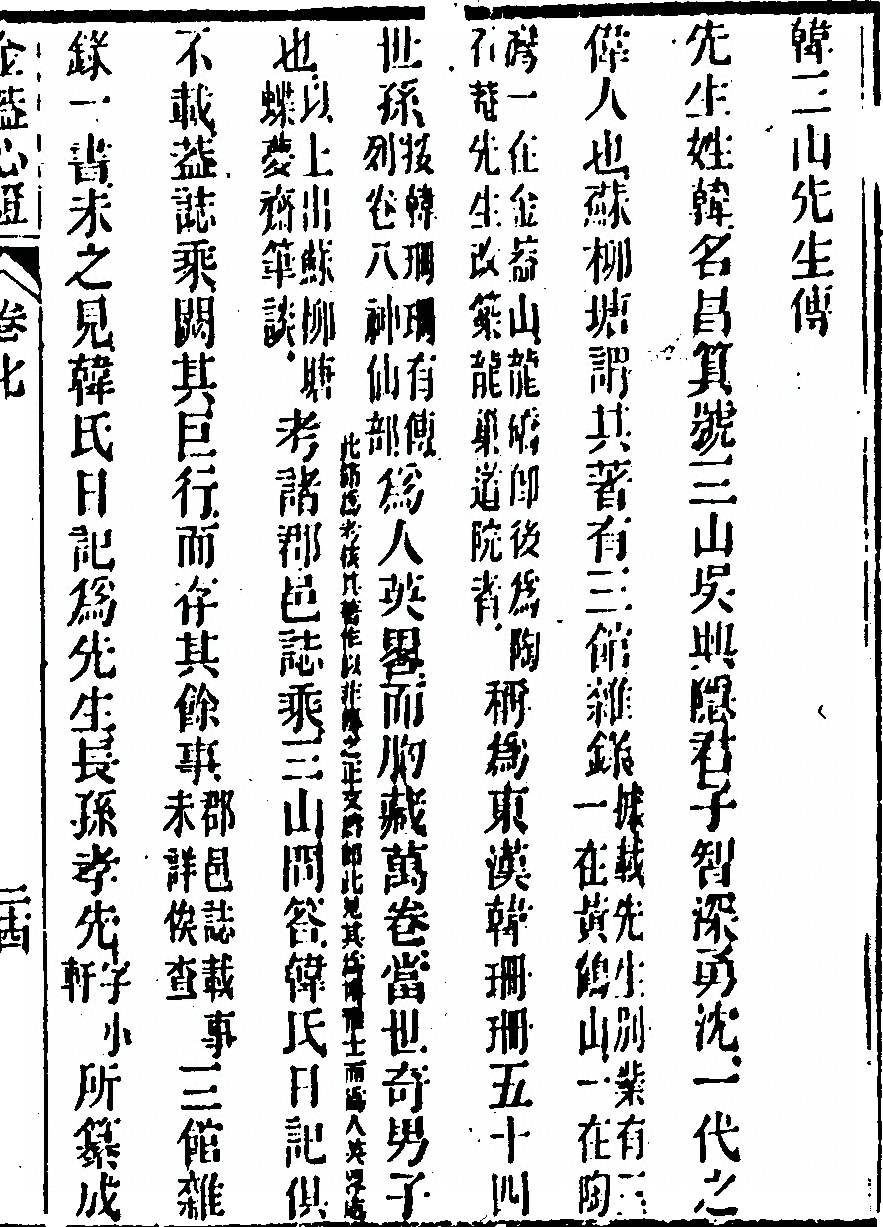 韓三山先生傳
先生姓韓名昌箕號三山吳興隱君子智深勇沈一代之
偉人也蘇柳塘謂其著有三館雜錄據載先生別業有三一在黃鶴山一在陶
灣一在金葢山龍嶠卽後爲陶石菴先生改築龍巢道院者稱爲東漢韓珊珊五十四
世孫按韓珊珊有傳列卷八神仙部爲人英畧而胸藏萬卷當世奇男子
也以上出蘇柳塘蝶夢齋筆談考諸郡邑誌乘三山問答韓氏日記俱
不載葢誌乘闕其巨行而存其餘事郡邑誌載事未詳俟查三館雜
錄一書未之見韓氏日記爲先生長孫孝先字小軒所纂成
金葢心燈
卷七
二四